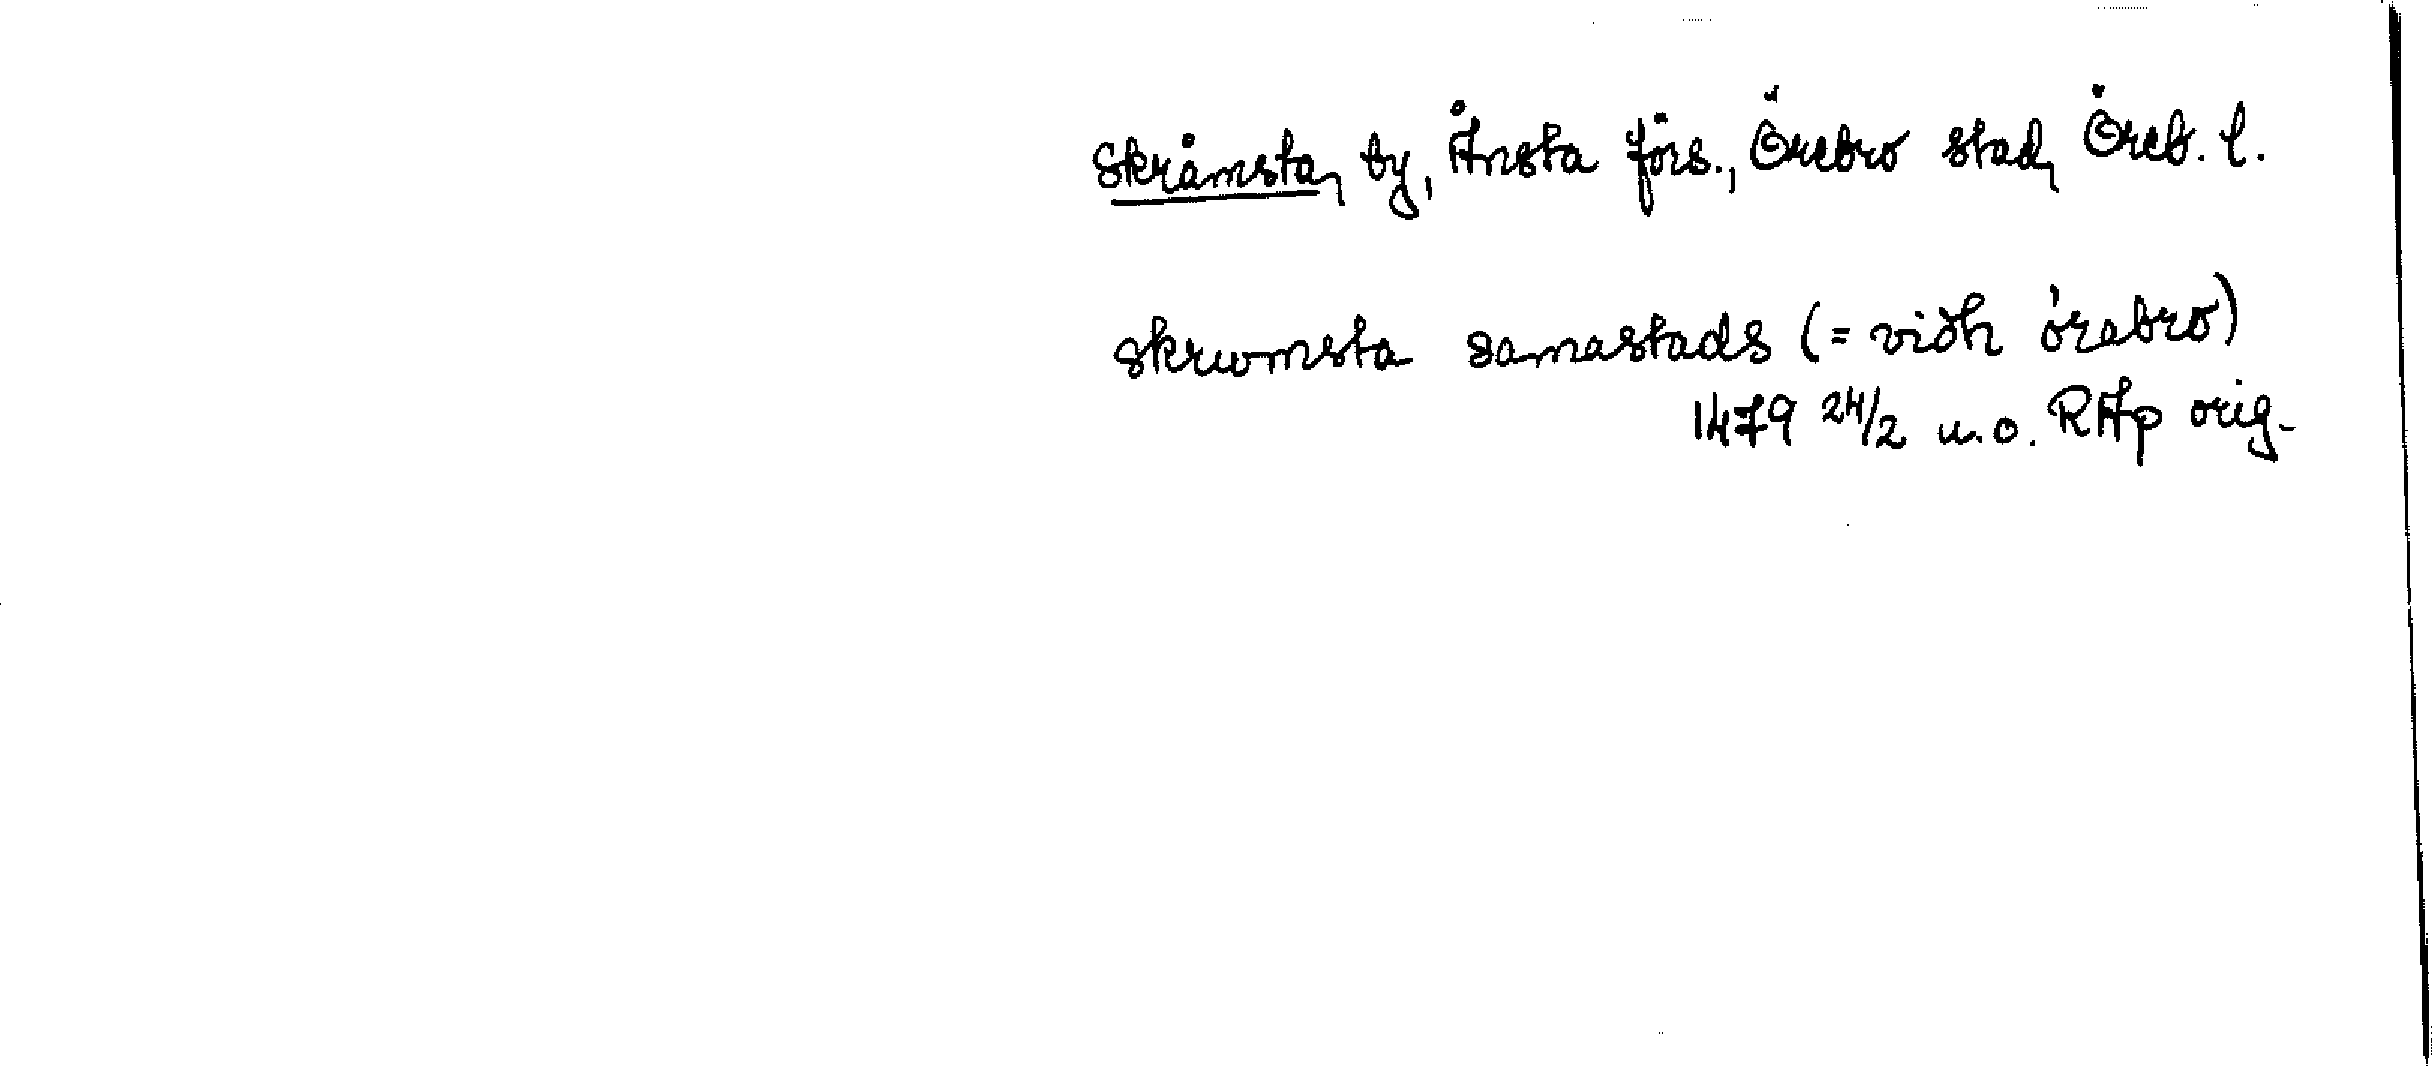 Skråmsta, by, Ånsta förs., Örebro stad, Öreb. l.
skrwmsta samastads (= vidh örebro)
1479 24/2 u.o. RAp orig.